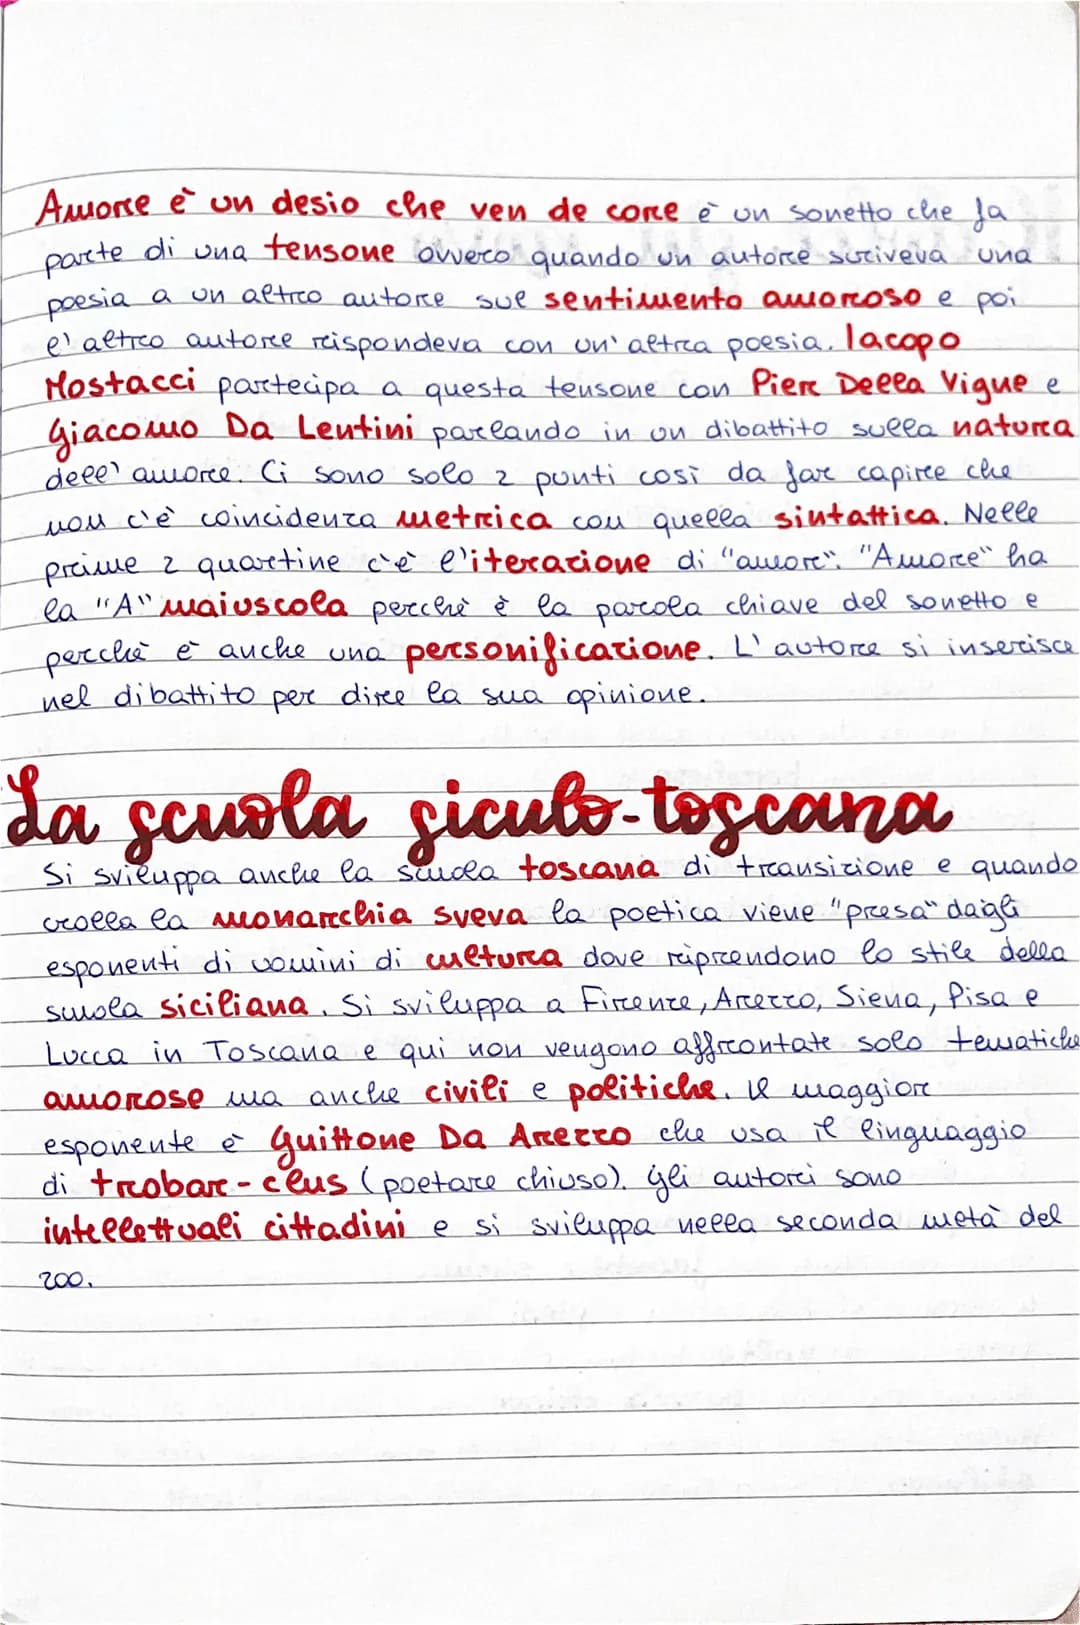 Amore è un desio che ven de core è un sonetto che fa
parte di una tensone ovvero quando un autore scriveva una
poesia a un altro autore sul sentimento amoroso e poi
l'altro autore rispondeva con un'altra poesia. Iacopo
Mostacci partecipa a questa tensone con Pier Della Vigne e
Giacomo Da Lentini parlando in un dibattito sulla natura
dell'amore. Ci sono solo 2 punti così da far capire che
non c'è coincidenza metrica con quella sintattica. Nelle
prime 2 quartine c'è l'iterazione di "amore". "Amore" ha
la "A" maiuscola perchè è la parola chiave del sonetto e
perchè è anche una personificazione. L'autore si inserisce
nel dibattito per dire la sua opinione.
La scuola siculo-toscana
Si sviluppa anche la scuola toscana di transizione e quando
crolla la monarchia sveva la poetica viene "presa" dagli
esponenti di uomini di cultura dove riprendono lo stile della
scuola siciliana. Si sviluppa a Firenze, Arezzo, Siena, Pisa e
Lucca in Toscana e qui non vengono affrontate solo tematiche
amorose ma anche civili e politiche. Il maggior
esponente è Guittone Da Arezzo che usa il linguaggio
di trobar-clus (poetare chiuso). Gli autori sono
intellettuali cittadini e si sviluppa nella seconda metà del
200.